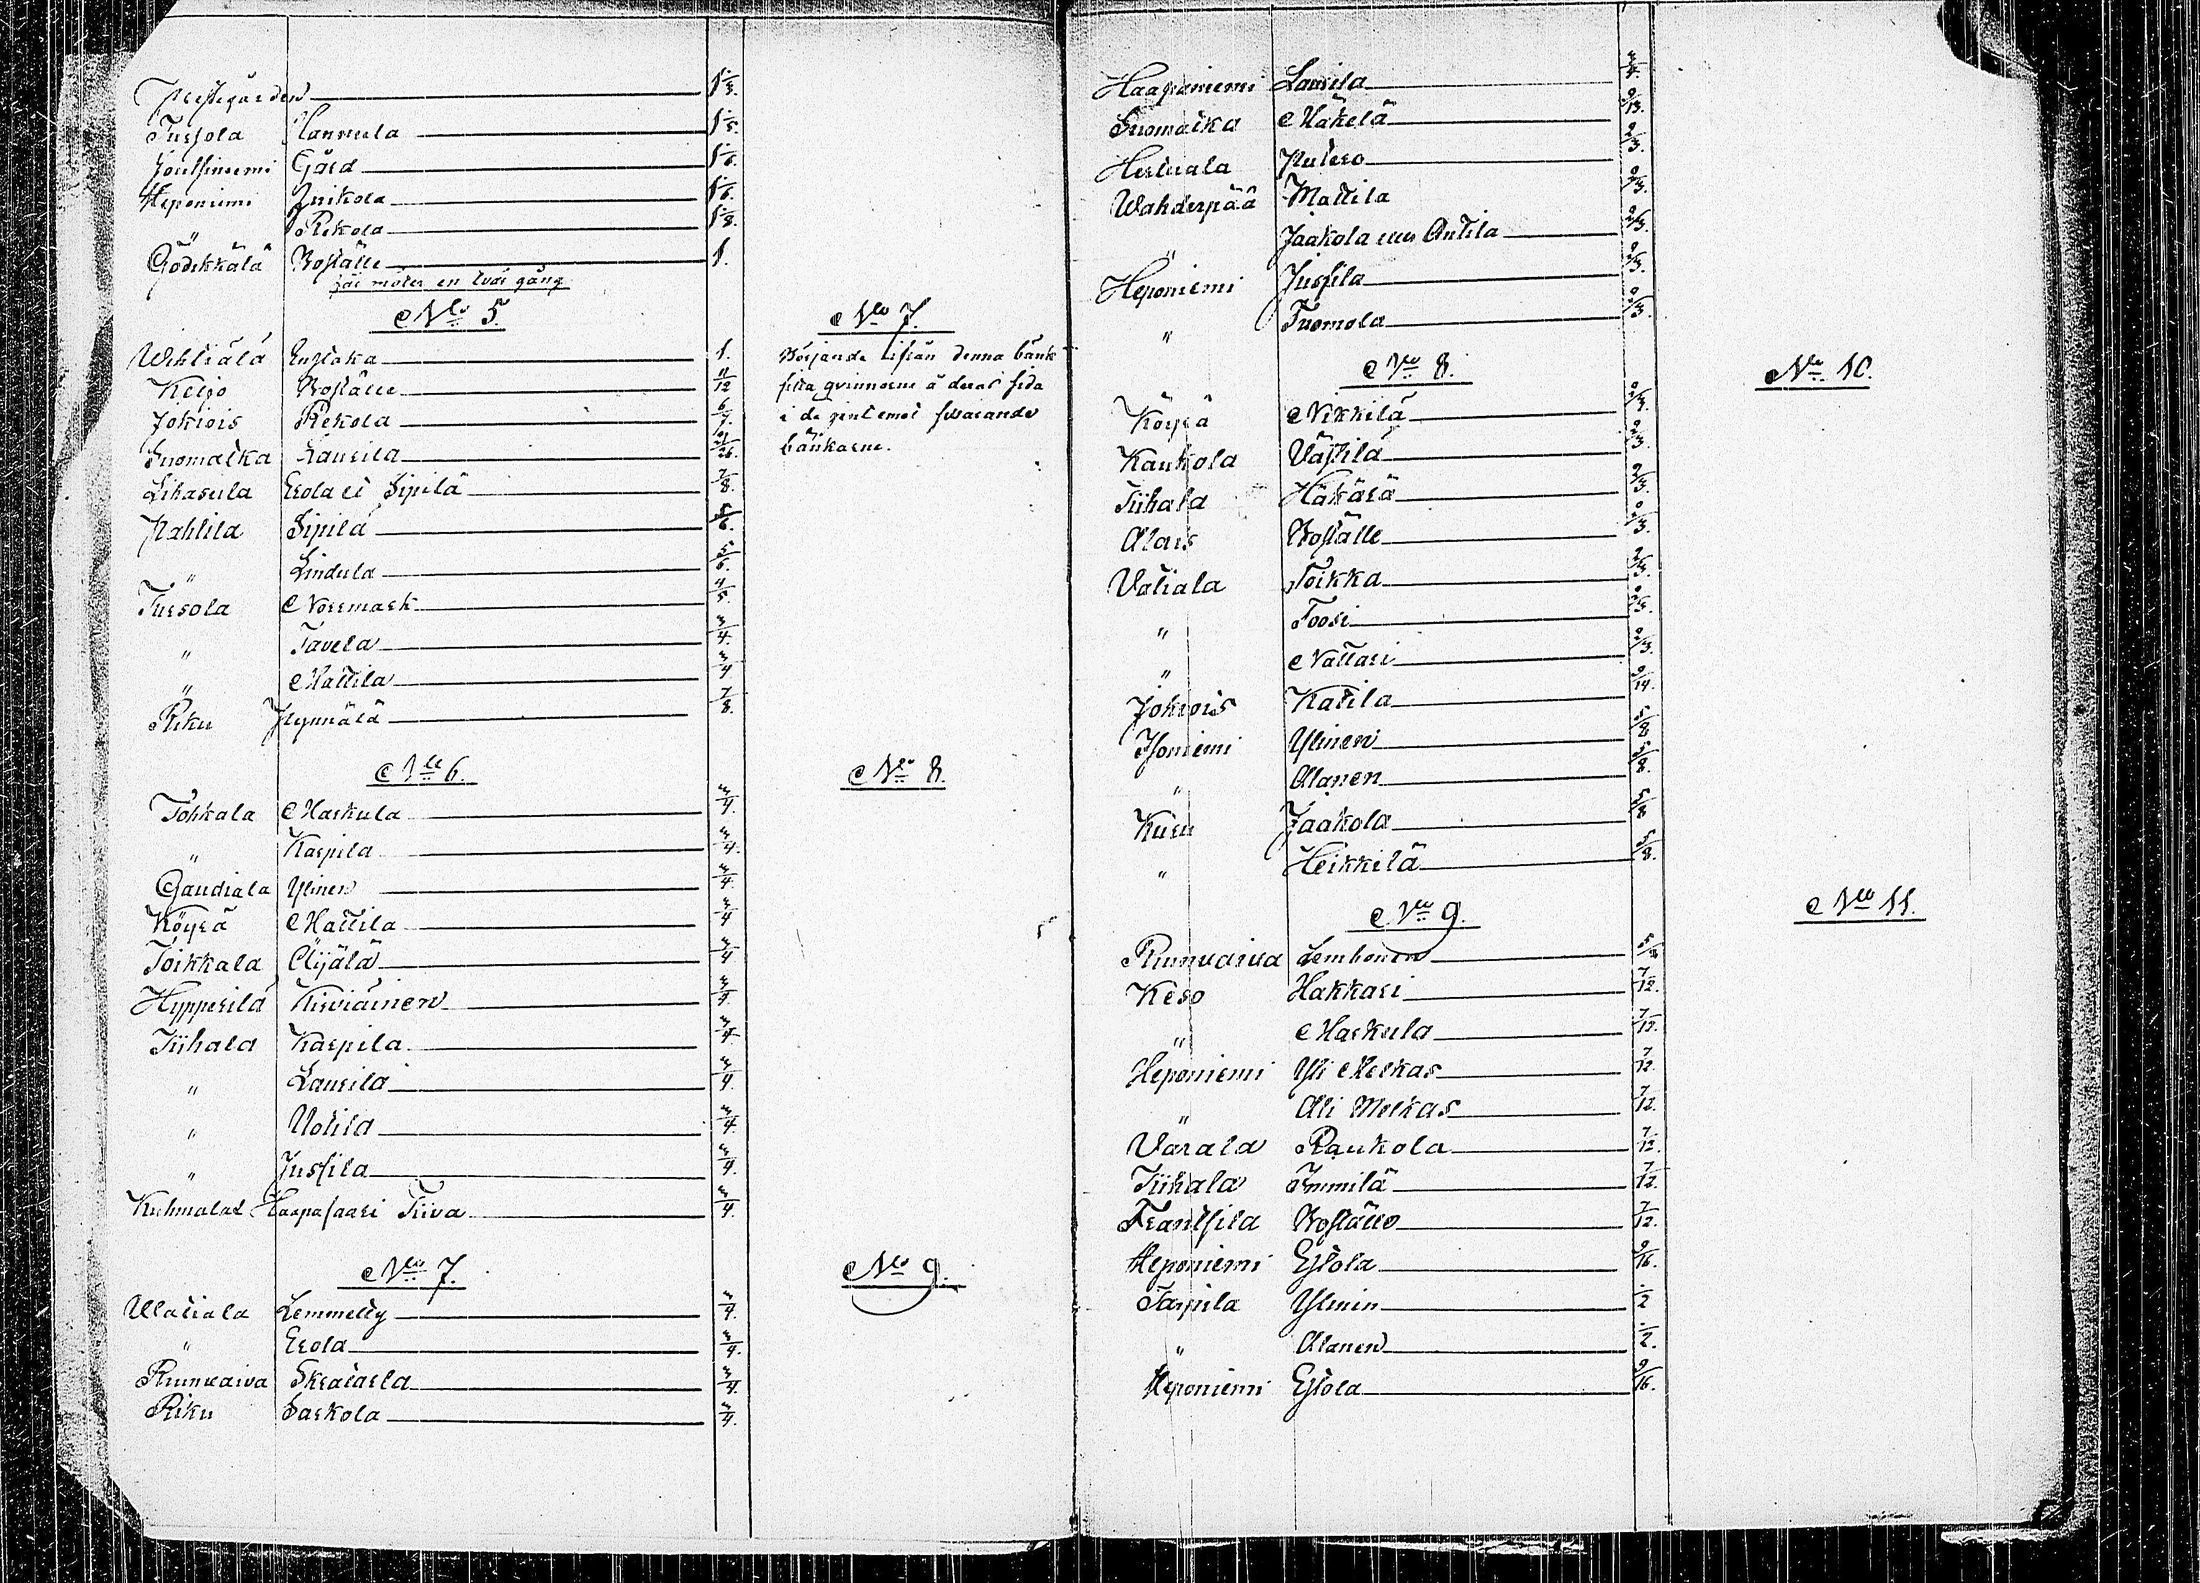 Prestegården 1 1/3.
Tursola Hannula 1 1/5.
Joutsiniemi Gård 1 1/6.
Heponiemi Junkola 1 1/6.
" Rekola 1 1/8.
Gödekkälä Boställe 1.
här möter en tvär gång
No 5.
Wihtiälä Enstaka 1.
Keijo Boställe 11/12
Jokiois Rekola 6/7.
Suomaika Laurila 21/26.
Lihasula Erola et Sipilä 7/8.
Kahtila Sipilä 5/6.
" Lindula 5/6.
Tursola Norrmark 4/5.
" Tavela 3/4.
" Mattila 3/4
Riku Hynnälä 7/8.
No 6.
Tohkala Markula 3/4.
" Karpila 3/4.
Gaudiala Ylinen 3/4.
Köyrä Mattila 3/4
Toikkala Äijälä 3/4
Hypperilä Kirviäinen 3/4.
Tiihala Karpila 3/4
" Laurila 3/4.
" Uotila 3/4.
" Jussila 3/4.
Kuhmalax Haapasaari Tiiva 3/4.
No 7.
Ulatiala Lemmetty 3/4.
" Erola 3/4.
Ruunuaiva Skratarla 3/4.
Riku Sarkola 3/4.
No 7.
Börjande ifrån denna bänk
sitta qvinnorne å deras sida
i de gent emot svarande
bänkarne.
No 8.
No 9.
Haapaniemi Laurila 3/4.
Suomaika Mäkelä 9/13.
Hertuala Putero 2/3.
Wahderpää Mattila 2/3.
" Jaakola Antila 2/3.
Heponiemi Jussila 2/3.
" Tuomola 2/3.
No 8.
Köyrä Nikkilä 2/3.
Kaukola Västilä 2/3.
Tiihala Häkärä 2/3.
Alais Boställe 2/3.
Vatiala Toikka 2/3.
" Toori 2/3.
" Nattari 2/3.
Jokiois Katila 9/14.
Isoniemi Ylinen 5/8
" Alanen 5/8.
Kuru Jaakola 5/8
" Heikkilä 5/8.
No 9.
Ruunuaiva Lembonen 5/8
Keso Hakkari 7/12.
" Markula 7/12.
Heponiemi Yli Melkas 7/12.
" Ali Melkas 7/12.
Värala Raukola 7/12.
Tiihala Immilä 7/12.
Frantsila Boställe 7/12.
Heponiemi Eskola 9/16.
Tarpila Ylinin 1/2
" Alanen 1/2.
Heponiemi Eskola 9/16.
No 10.
No 11.